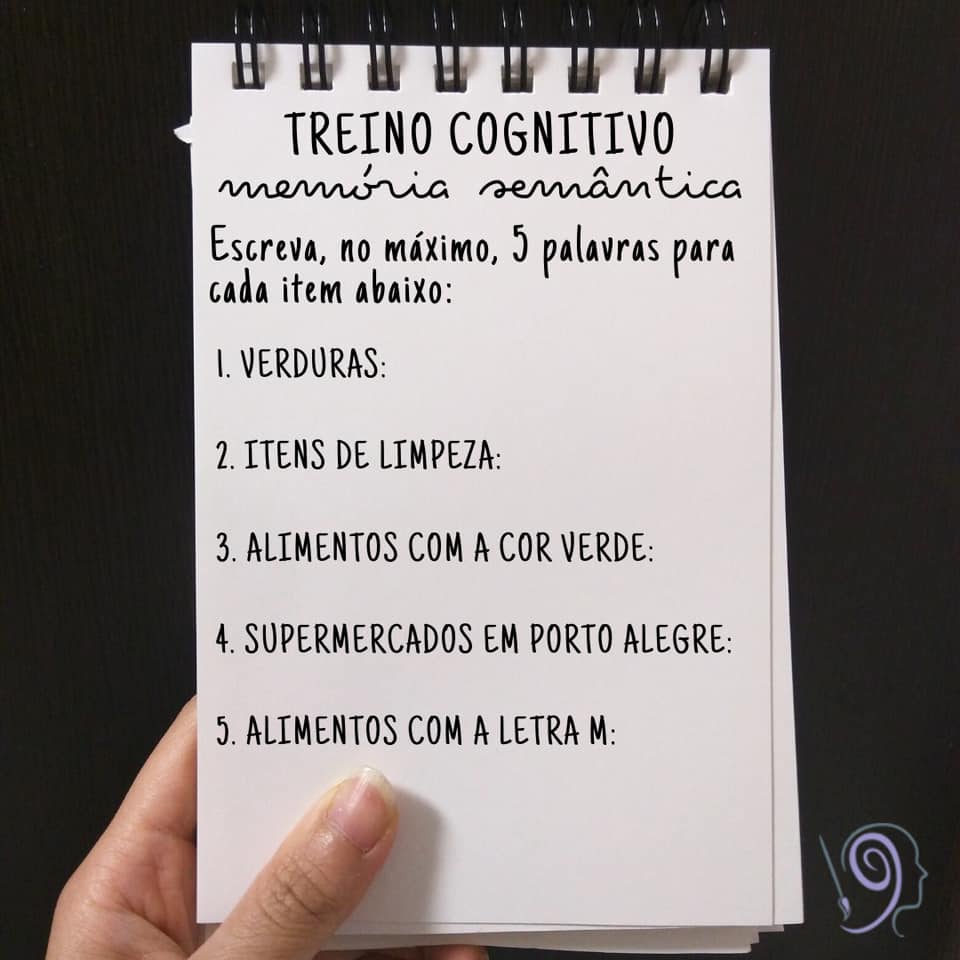 TREINO COGNITIVO
memória semântica
Escreva, no máximo, 5 palavras para
cada item abaixo:
1. VERDURAS:
2. ITENS DE LIMPEZA:
3. ALIMENTOS COM A COR VERDE:
4. SUPERMERCADOS EM PORTO ALEGRE:
5. ALIMENTOS COM A LETRA M: